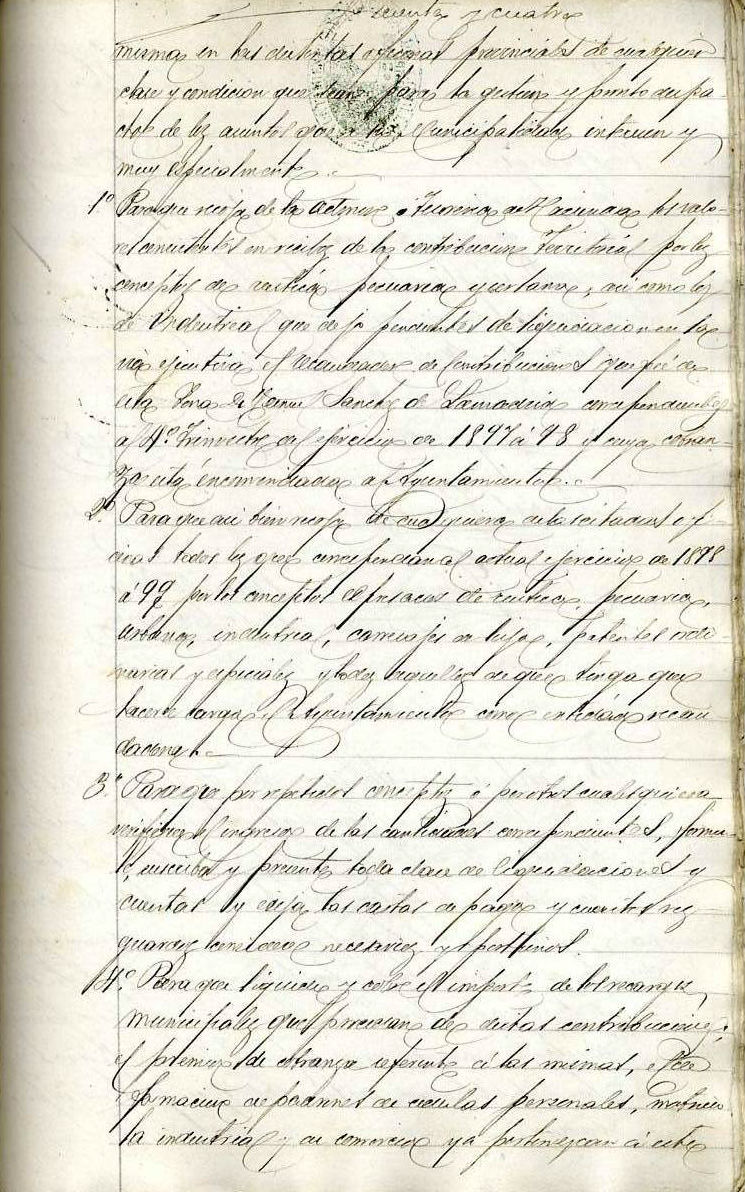 cuenta y cuatro
misma en las distintas oficinas provinciales de cualquier
clase y condicion que sean para la gestion y pronto despa-
cho de los asuntos que á las Municipalidades interesen y
muy especialmente.
1º Para que recoja de la ó Tesoreria de Hacienda los valo-
res consistentes en recibos de la contribucion Territorial por los
conceptos de rustica pecuaria y urbana, asi como los
de Yndustrial que dejó pendientes de liquidacion en la
via ejecutiva el recaudador de Contribuciones que fué de
esta Zona D. Manuel Sanchez de Lamadrid correspondientes
al 4º Trimestre del ejercicio de 1897 á 98 y cuya cobran-
za está encomendada al Ayuntamiento.
2º Para que asi bien recoja de cualquiera de las citadas ofi-
cinas todos los que correspondan al actual ejercicio de 1898
á 99 por los conceptos de rustica, pecuaria,
urbana, industrial, carruajes de lujo, patentes ordi-
narias y especiales y todos aquellos de que tenga que
hacerse cargo el Ayuntamiento como entidad recau-
dadora.
3º Para que por repetidos conceptos ó por otros cualesquiera
verifique el ingreso de las cantidades correspondientes, formu-
le, suscriba y presente toda clase de liquidaciones y
cuentas y exija las cartas de pago y cuantos res-
guardos considere necesarios y oportunos.
4º Para que liquide y cobre el importe de los recargos
municipales que procedan de dichas contribuciones,
el premio de cobranza referente á las mismas, el de
formacion de padrones de cedulas personales, matricu
la industrial y de comercio y á pertenezcan á este